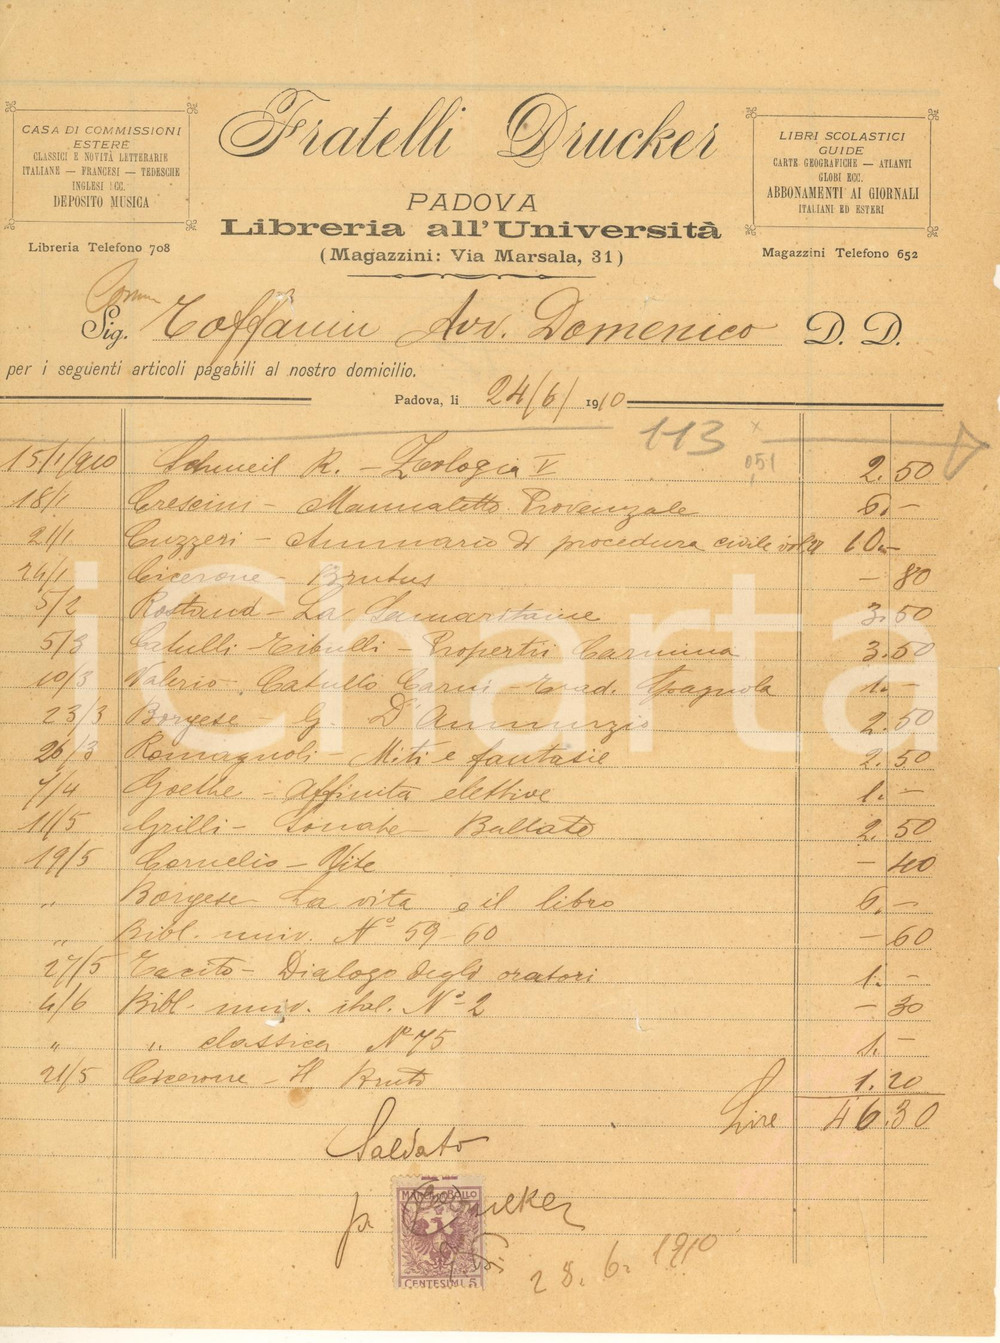 CASA DI COMMISSIONI
ESTERE
CLASSICI E NOVITÀ LETTERARIE
ITALIANE — FRANCESI — TEDESCHE
INGLESI ECC.
DEPOSITO MUSICA
Libreria Telefono 708
Fratelli Drucker
PADOVA
Libreria all'Università
(Magazzini: Via Marsala, 31)
LIBRI SCOLASTICI
GUIDE
CARTE GEOGRAFICHE — ATLANTI
GLOBI ECC.
ABBONAMENTI AI GIORNALI
ITALIANI ED ESTERI
Magazzini Telefono 652
Sig. Toffanin Avv. Domenico D. D.
per i seguenti articoli pagabili al nostro domicilio.
Padova, li 24/6/1910
113
051
15/1/910 Schmeil R. - Zoologia V 2.50
18/1 Crescini - Manualetto Provenzale 6.-
21/1 Cuzzeri - Annuario di procedura civile vol. 27 10.-
24/1 Cicerone - Brutus - 80
5/2 Rostand - La Samaritaine 3.50
5/3 Catulli - Tibulli - Propertii Carmina 3.50
10/3 Valerio - Catullo Carmi - Trad. Spagnola 1.-
23/3 Borgese - G. D'Annunzio 2.50
26/3 Romagnoli - Miti e fantasie 2.50
7/4 Goethe - Affinità elettive 1.-
11/5 Grilli - Sonate Ballate 2.50
19/5 Cornelio - Vite - 40
" Borgese La vita e il libro 6.-
" Bibl. univ. No 59-60 - 60
27/5 Tacito - Dialogo degli oratori 1.-
4/6 Bibl. univ. ital. No 2 - 30
" " classica No 75 1.-
21/5 Cicerone - Il Bruto 1.20
Lire 46.30
Saldato
p. Drucker
MARCA DA BOLLO
CENTESIMI 5
28.6.1910
iCharta